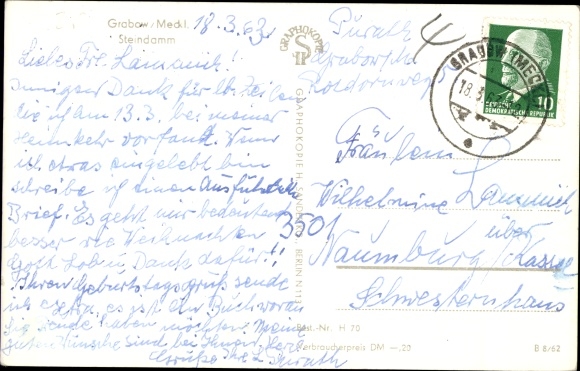 Grabow/Meckl. 18.3.63
Steindamm
Liebes Frl. Lamanik!
innigen Dank für lb. Zeilen
die ich am 13.3. bei meiner
Heimkehr vorfand. Wenn
ich etwas eingelebt bin
schreibe ich einen ausführlichen
Brief. Es geht mir bedeutend
besser wie Weihnachten
Gott Lob u. Dank dafür!!
Ihren Geburtstagsgruß sende
ich es ist ein Buch woran
Sie Freude haben möchten. Meine
guten Wünsche sind bei Ihnen. Herzl.
Grüße Ihre L. Purath
GRAPHOKOPIE
GRAPHOKOPIE H. BERLIN N 113
Best.-Nr. H 70
Verbraucherpreis DM —,20
B 8/62
Purath
Grabow/M.
Rotdornweg 5
GRABOW (MECKL)
18.3.63
10
DEUTSCHE
DEMOKRATISCHE REPUBLIK
Fräulein
Wilhelmine
3501 über
Naumburg/Kassel
Schwesternhaus